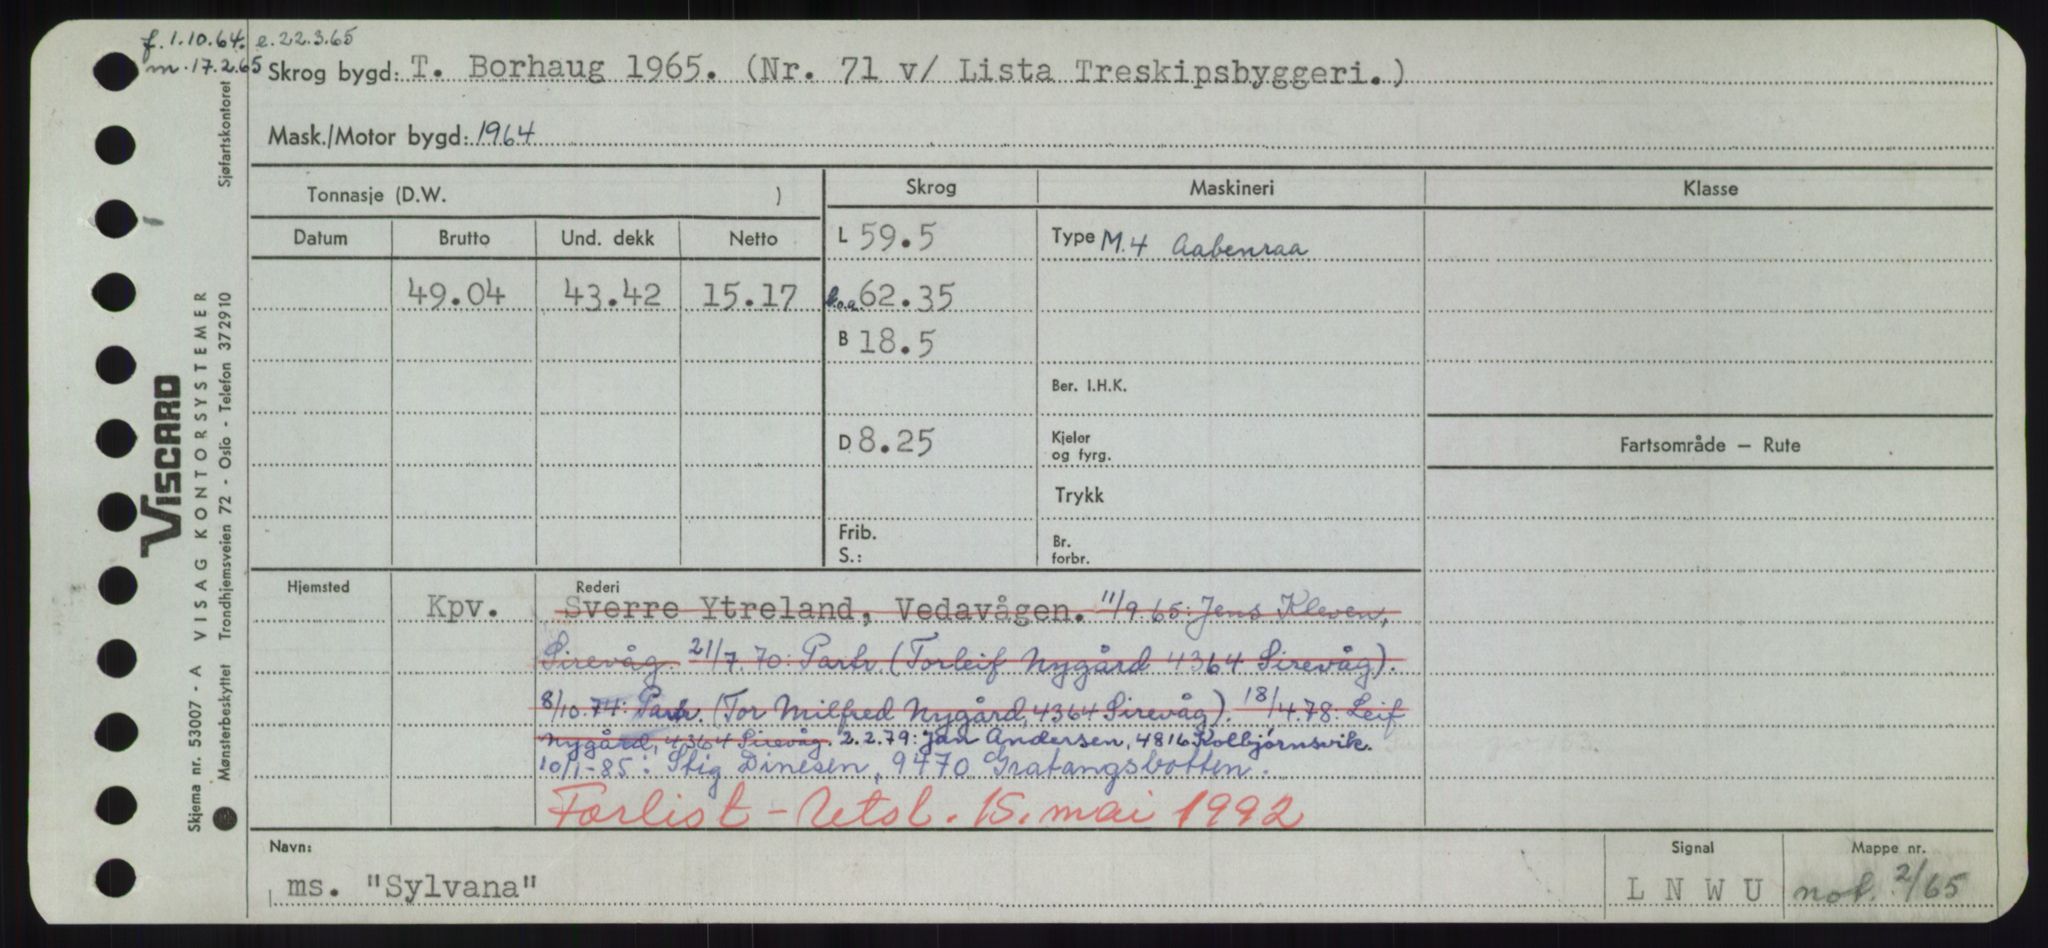 f. 1.10.64. e. 22.3.65
m. 17.2.65
Skrog bygd: T. Borhaug 1965. (Nr. 71 v/ Lista Treskipsbyggeri.)
Mask./Motor bygd: 1964
Tonnasje (D.W. )
Skrog Maskineri Klasse
Datum Brutto Und. dekk Netto
L 59.5 Type M.4 Aabenraa
49.04 43.42 15.17 l.o.a. 62.35
B 18.5
Ber. I.H.K.
D 8.25 Kjeler og fyrg.
Fartsområde — Rute
Trykk
Frib. S.:
Br. forbr.
Hjemsted Rederi
Kpv. Sverre Ytreland, Vedavågen. 11/9.65: Jens Kleven,
Sirevåg. 21/7.70: Partr. (Torleif Nygård 4364 Sirevåg).
8/10.74: Partr. (Tor Milfred Nygård, 4364 Sirevåg). 18/4.78: Leif
Nygård, 4364 Sirevåg. 2.2.79: Jan Andersen, 4816 Kolbjørnsvik.
10/1-85: Stig Dinesen, 9470 Gratangsbotten.
Forlist - Utsl. 15. mai 1992
Navn: Signal Mappe nr.
ms. "Sylvana" L N W U not. 2/65
VISCARD
Skjema nr. 53007 - A VISAG KONTORSYSTEMER
Mønsterbeskyttet Trondhjemsveien 72 - Oslo - Telefon 372910 Sjøfartskontoret